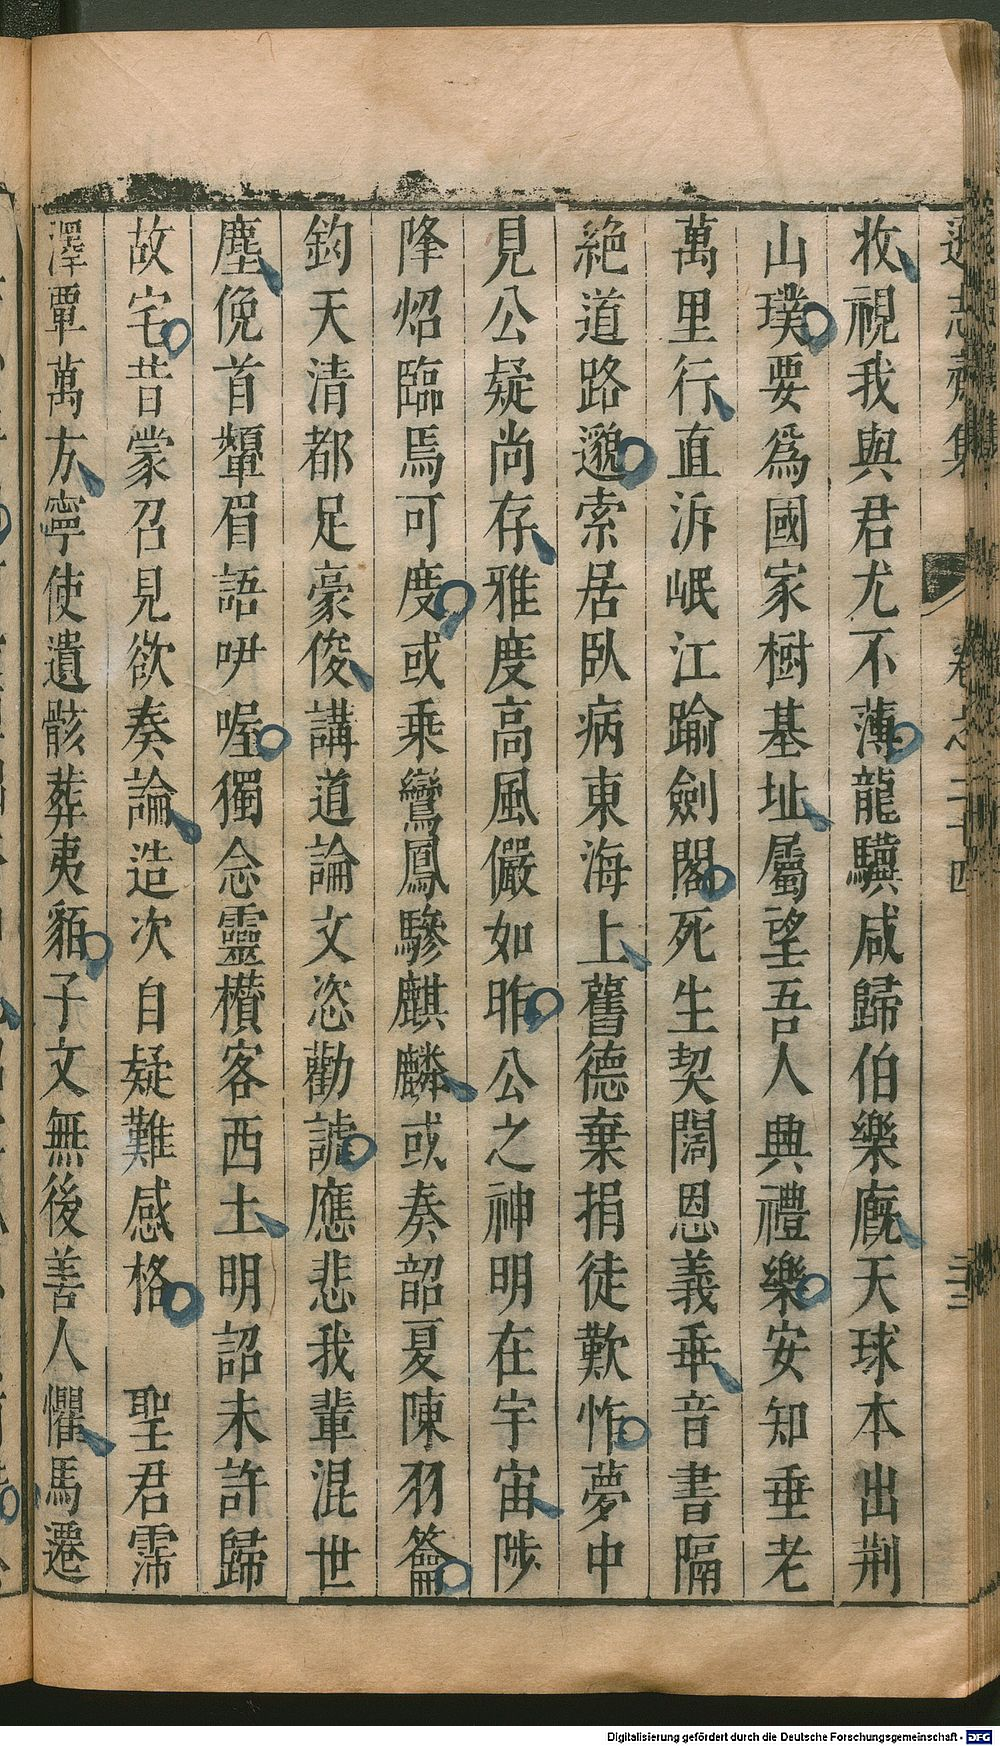 遜志齋集 卷之二十四 二十三
牧視我與君尤不薄龍驥咸歸伯樂廐天球本出荆
山璞要爲國家樹基址屬望吾人典禮樂安知垂老
萬里行直泝岷江踰劍閣死生契闊恩義乖音書隔
絶道路邈索居臥病東海上舊德棄捐徒歎怍夢中
見公疑尚存雅度高風儼如昨公之神明在宇宙陟
降炤臨焉可度或乘鸞鳳驂麒麟或奏韶夏陳羽籥
鈞天清都足豪俊講道論文恣勸謔應悲我輩混世
塵俛首顰眉語吚喔獨念靈櫕客西土明詔未許歸
故宅昔蒙召見欲奏論造次自疑難感格 聖君霈
澤覃萬方寧使遺骸葬夷貊子文無後善人懼馬遷
Digitalisierung gefördert durch die Deutsche Forschungsgemeinschaft - DFG